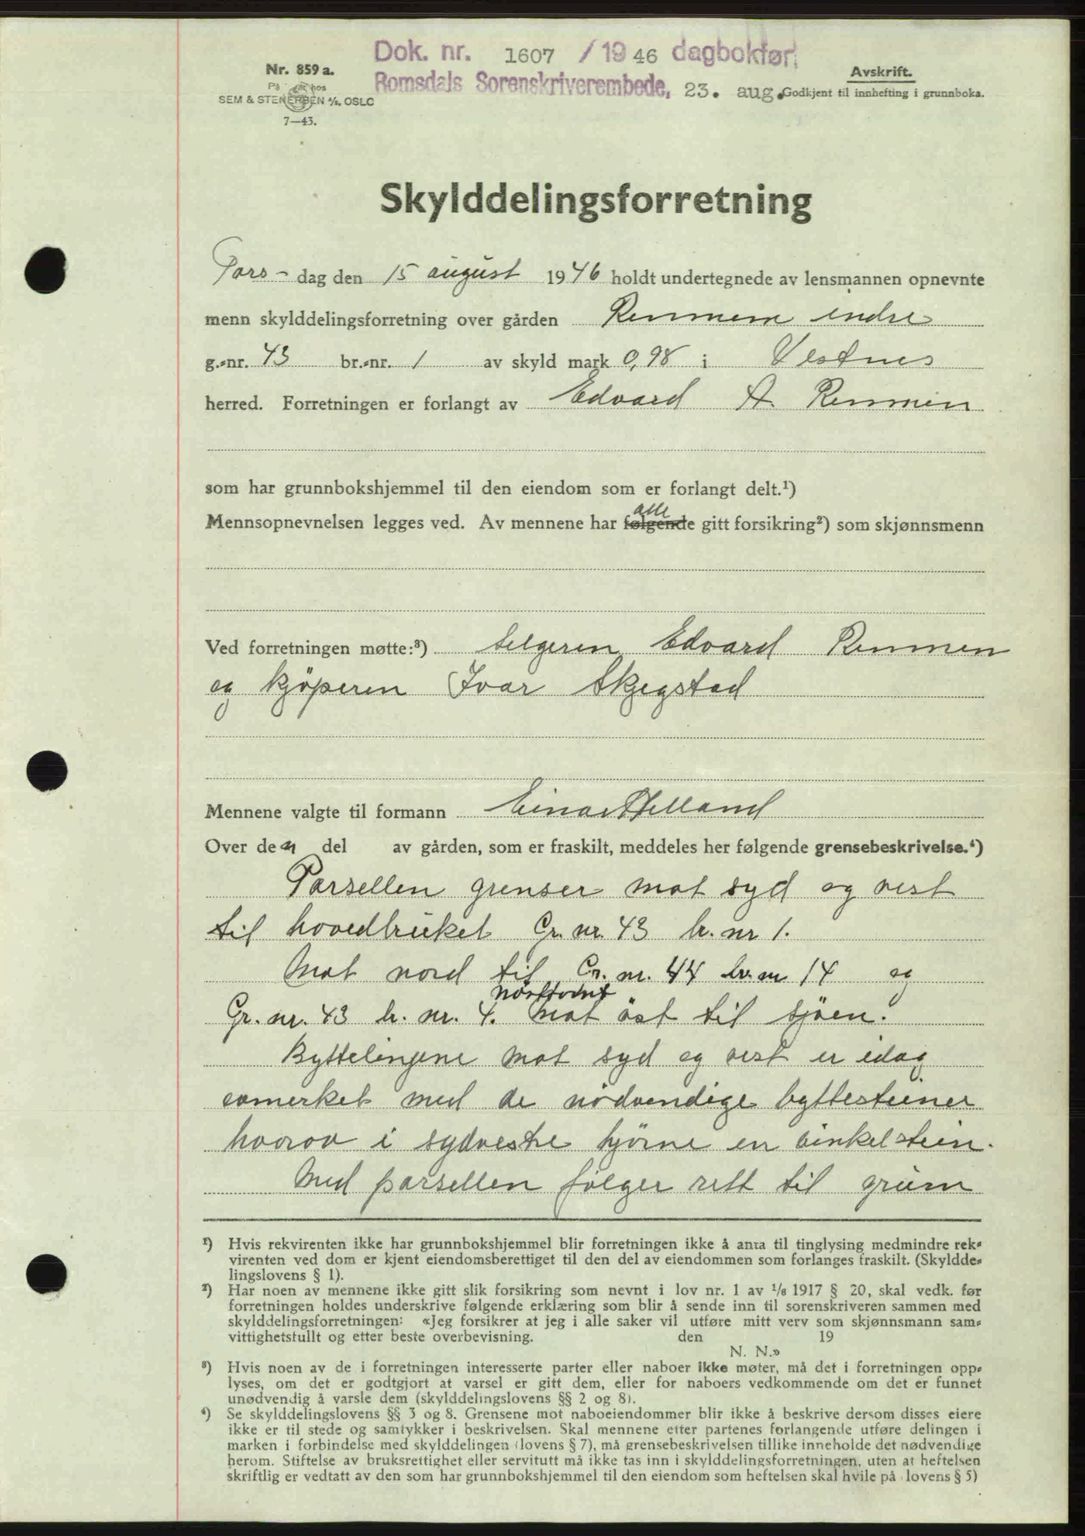 Dok. nr. 1607 / 1946 dagbokført
Nr. 859 a.
Avskrift.
Romsdals Sorenskriverembede, 23. aug. Godkjent til innhefting i grunnboka.
SEM & STENERSEN A/S. OSLO
7—43.
Skylddelingsforretning
Tors- dag den 15 august 1946 holdt undertegnede av lensmannen opnevnte
menn skylddelingsforretning over gården Remmem indre
g.-nr. 43 br.-nr. 1 av skyld mark 0,98 i Vestnes
herred. Forretningen er forlangt av Edvard A. Remmen
som har grunnbokshjemmel til den eiendom som er forlangt delt.¹)
alle
Mennsopnevnelsen legges ved. Av mennene har følgende gitt forsikring²) som skjønnsmenn
Ved forretningen møtte:³) Selgeren Edvard Remmen
og kjöperen Ivar Skjegstad
Mennene valgte til formann Einar Helland
Over den del av gården, som er fraskilt, meddeles her følgende grensebeskrivelse.⁴)
Parsellen grenser mot syd og vest
til hovedbruket Gr. nr. 43 br. nr 1.
Mot nord til Gr. nr. 44 br. nr 14 og
nøsttomt
Gr. nr. 43 br. nr. 4. Mot öst til sjöen.
Byttelinjene mot syd og vest er idag
avmerket med de nödvendige byttesteiner
hvorav i sydvestre hjörne en vinkelstein.
Med parsellen fölger rett til grunn
¹) Hvis rekvirenten ikke har grunnbokshjemmel blir forretningen ikke å anta til tinglysing medmindre rek-
virenten ved dom er kjent eiendomsberettiget til den del av eiendommen som forlanges fraskilt. (Skyldde-
lingslovens § 1).
²) Har noen av mennene ikke gitt slik forsikring som nevnt i lov nr. 1 av 1/6 1917 § 20, skal vedk. før
forretningen holdes underskrive følgende erklæring som blir å sende inn til sorenskriveren sammen med
skylddelingsforretningen: «Jeg forsikrer at jeg i alle saker vil utføre mitt verv som skjønnsmann sam-
vittighetsfullt og etter beste overbevisning. den 19
N. N.»
³) Hvis noen av de i forretningen interesserte parter eller naboer ikke møter, må det i forretningen opp-
lyses, om det er godtgjort at varsel er gitt dem, eller for naboers vedkommende om det er funnet
unødvendig å varsle dem (skylddelingslovens §§ 2 og 8).
⁴) Se skylddelingslovens §§ 3 og 8. Grensene mot naboeiendommer blir ikke å beskrive dersom disses eiere
ikke er til stede og samtykker i beskrivelsen. Skal mennene etter partenes forlangende utføre delingen i
marken i forbindelse med skylddelingen (lovens § 7), må grensebeskrivelsen tillike inneholde det nødvendige
herom. Stiftelse av bruksrettighet eller servitutt må ikke tas inn i skylddelingsforretningen, uten at heftelsen
skriftlig er vedtatt av den som har grunnbokshjemmel til den eiendom som heftelsen skal hvile på (lovens § 5)